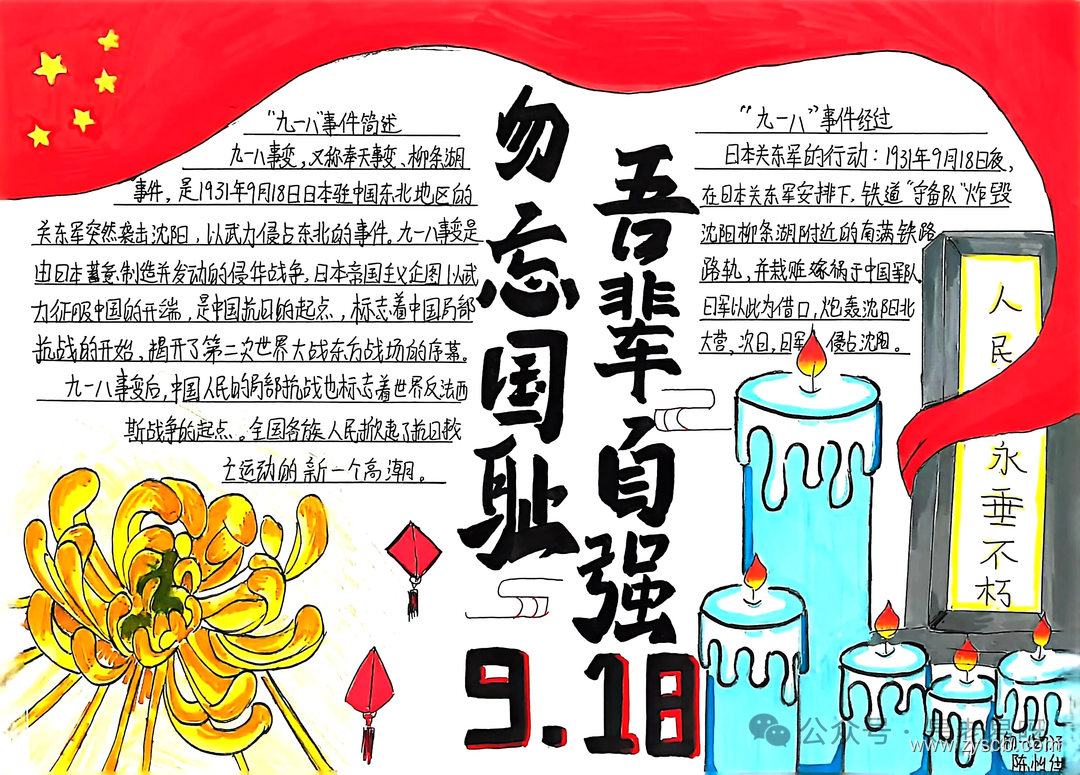 “九一八”事件简述
九一八事变，又称奉天事变、柳条湖
事件，是1931年9月18日日本驻中国东北地区的
关东军突然袭击沈阳，以武力侵占东北的事件。九一八事变是
由日本蓄意制造并发动的侵华战争，日本帝国主义企图以武
力征服中国的开端，是中国抗日的起点，标志着中国局部
抗战的开始，揭开了第二次世界大战东方战场的序幕。
九一八事变后，中国人民的局部抗战也标志着世界反法西
斯战争的起点。全国各族人民掀起了抗日救
亡运动的新一个高潮。
勿忘国耻
吾辈自强
9.18
“九一八”事件经过
日本关东军的行动：1931年9月18日夜，
在日本关东军安排下，铁道“守备队”炸毁
沈阳柳条湖附近的南满铁路
路轨，并栽赃嫁祸于中国军队。
日军以此为借口，炮轰沈阳北
大营，次日，日军侵占沈阳。
人民
永垂不朽
公众号
www.zyscb.com